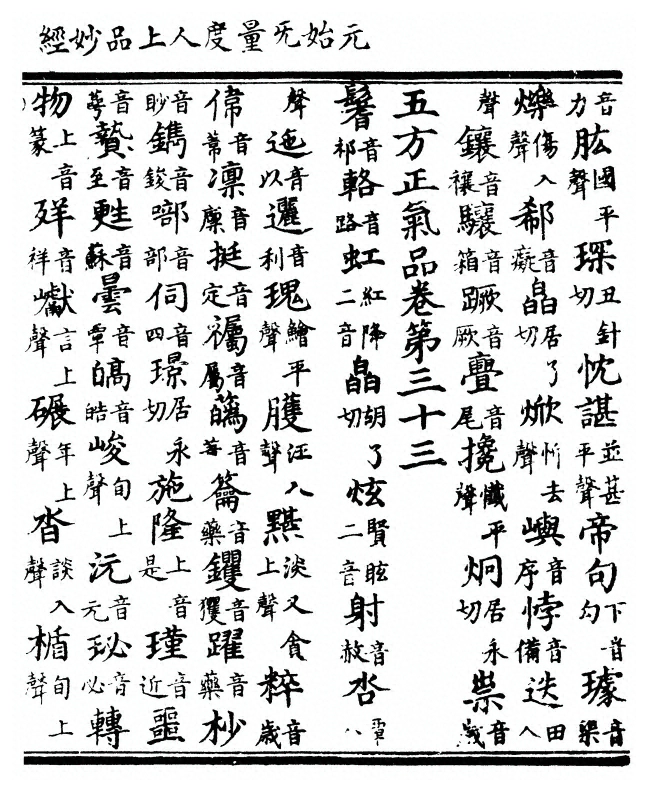 元始无量度人上品妙經
音力肱國平聲琛丑針切忱諶並甚平聲帝句下音勾璩音渠
爍傷入聲郗音癡皛居了切焮忻去聲嶼音序悖音備迭田入
聲鑲音穰驤音箱蹶音厥亹音尾攙懺平聲炯居永切祟音歲
五方正氣品卷第三十三
鬐音祁輅音路虹紅降二音皛胡了切炫賢眩二音射音赦沓覃入
聲迤音以邐音利瑰鱠平聲臒汪入聲黮淡又貪上聲粹音歲
音常凛音廩挺音定襡音屬音籥音藥钁音玃躍音藥杪
音眇鐫音鋑音部伺音四璟居永切施隆上音是瑾音近噩
音萼贄音至甦音蘇曇音覃皜音皓峻旬上聲沅音元珌音必轉
物上音篆音祥巘言上聲碾年上聲沓談入聲楯旬上聲